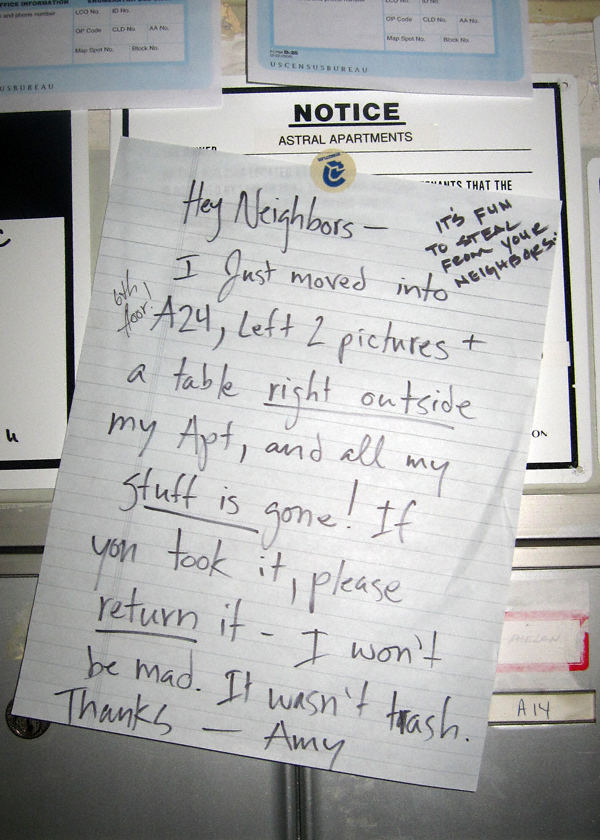 FFICE INFORMATION
and phone number
LCO No. ID No.
OP Code CLD No. AA No.
Map Spot No. Block No.
USBUREAU
OP Code CLD No. AA No.
Map Spot No. Block No.
USCENSUSBUREAU
NOTICE
ASTRAL APARTMENTS
ANTS THAT THE
Hey Neighbors —
IT'S FUN
TO STEAL
FROM YOUR
NEIGHBORS!
I Just moved into
6th
floor!
A24, Left 2 pictures +
a table right outside
my Apt, and all my
stuff is gone! If
you took it, please
return it - I won't
be mad. It wasn't trash.
Thanks — Amy
ON
A14